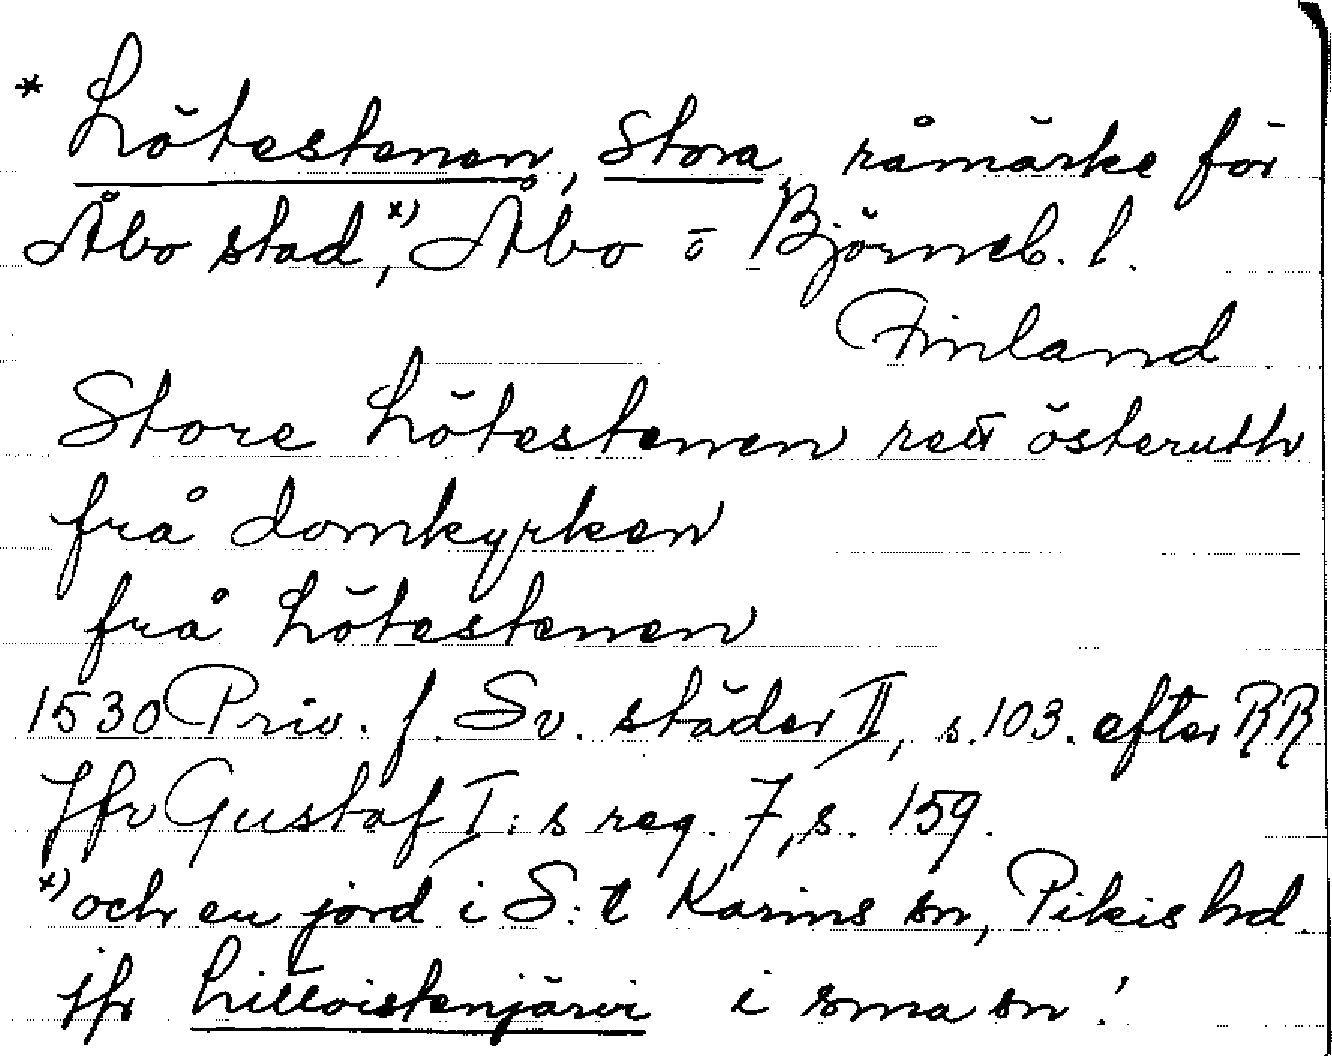 * Lötestenen, Stora, råmärke för
Åbo stad,ˣ⁾ Åbo o Björneb. l.
Finland
Store Lötestenen rett österuth
frå domkyrken
frå Lötestenen
1530 Priv. f. Sv. städer II, s. 103. efter RR
Jfr Gustaf I:s reg. 7, s. 159.
ˣ⁾ och en jord i S:t Karins sn, Pikis hd.
jfr Littoistenjärvi i sma sn!